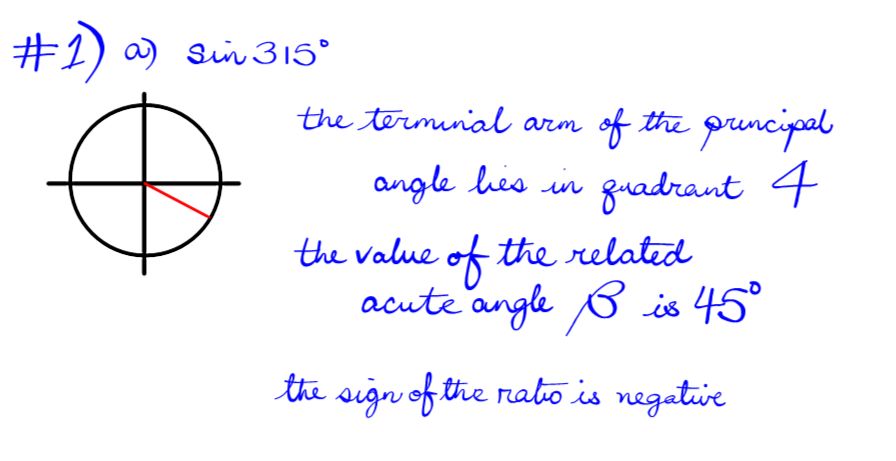 #1) a) sin 315°
the terminal arm of the principal
angle lies in quadrant 4
the value of the related
acute angle β is 45°
the sign of the ratio is negative